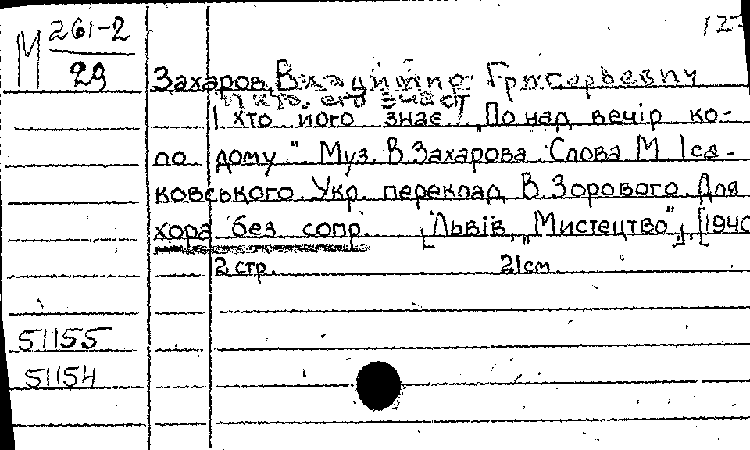 М 261-2
29
Захаров, Владимир Григорьевич
И кто его знает
І хто його знає. "По над вечір ко-
ло дому" Муз. В. Захарова Слова М Іса-
ковського Укр. переклад В. Зорового Для
хора без сопр. [Львів, "Мистецтво", [1940
2 стр. 21 см.
51155
51154